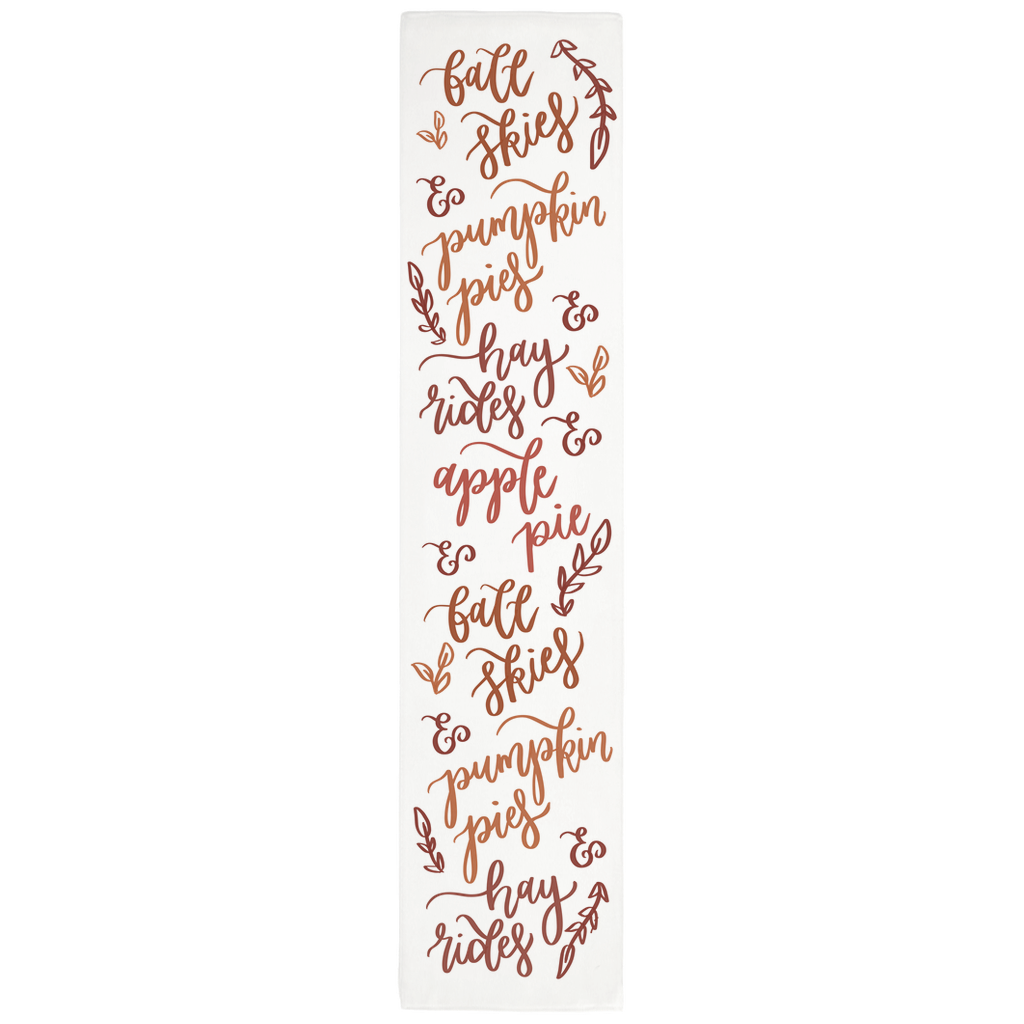 fall
skies
&
pumpkin
pies
&
hay
rides
&
apple
pie
&
fall
skies
&
pumpkin
pies
&
hay
rides